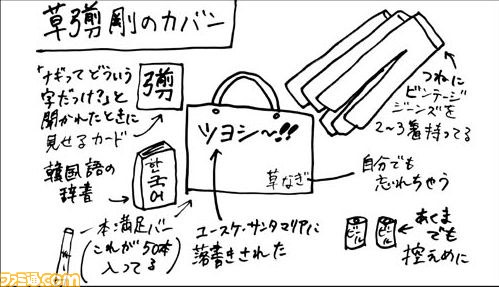 草彅剛のカバン
「ナギってどういう
字だっけ?」と
聞かれたときに
見せるカード
彅
つねに
ビンテージ
ジーンズを
2〜3着持ってる
韓国語の
辞書
한국어
ツヨシ〜!!
草なぎ
自分でも
忘れちゃう
一本満足バー
(これが50本
入ってる)
ユースケ・サンタマリアに
落書きされた
ビール
ビール
あくま
でも
控えめに
ファミ通.com